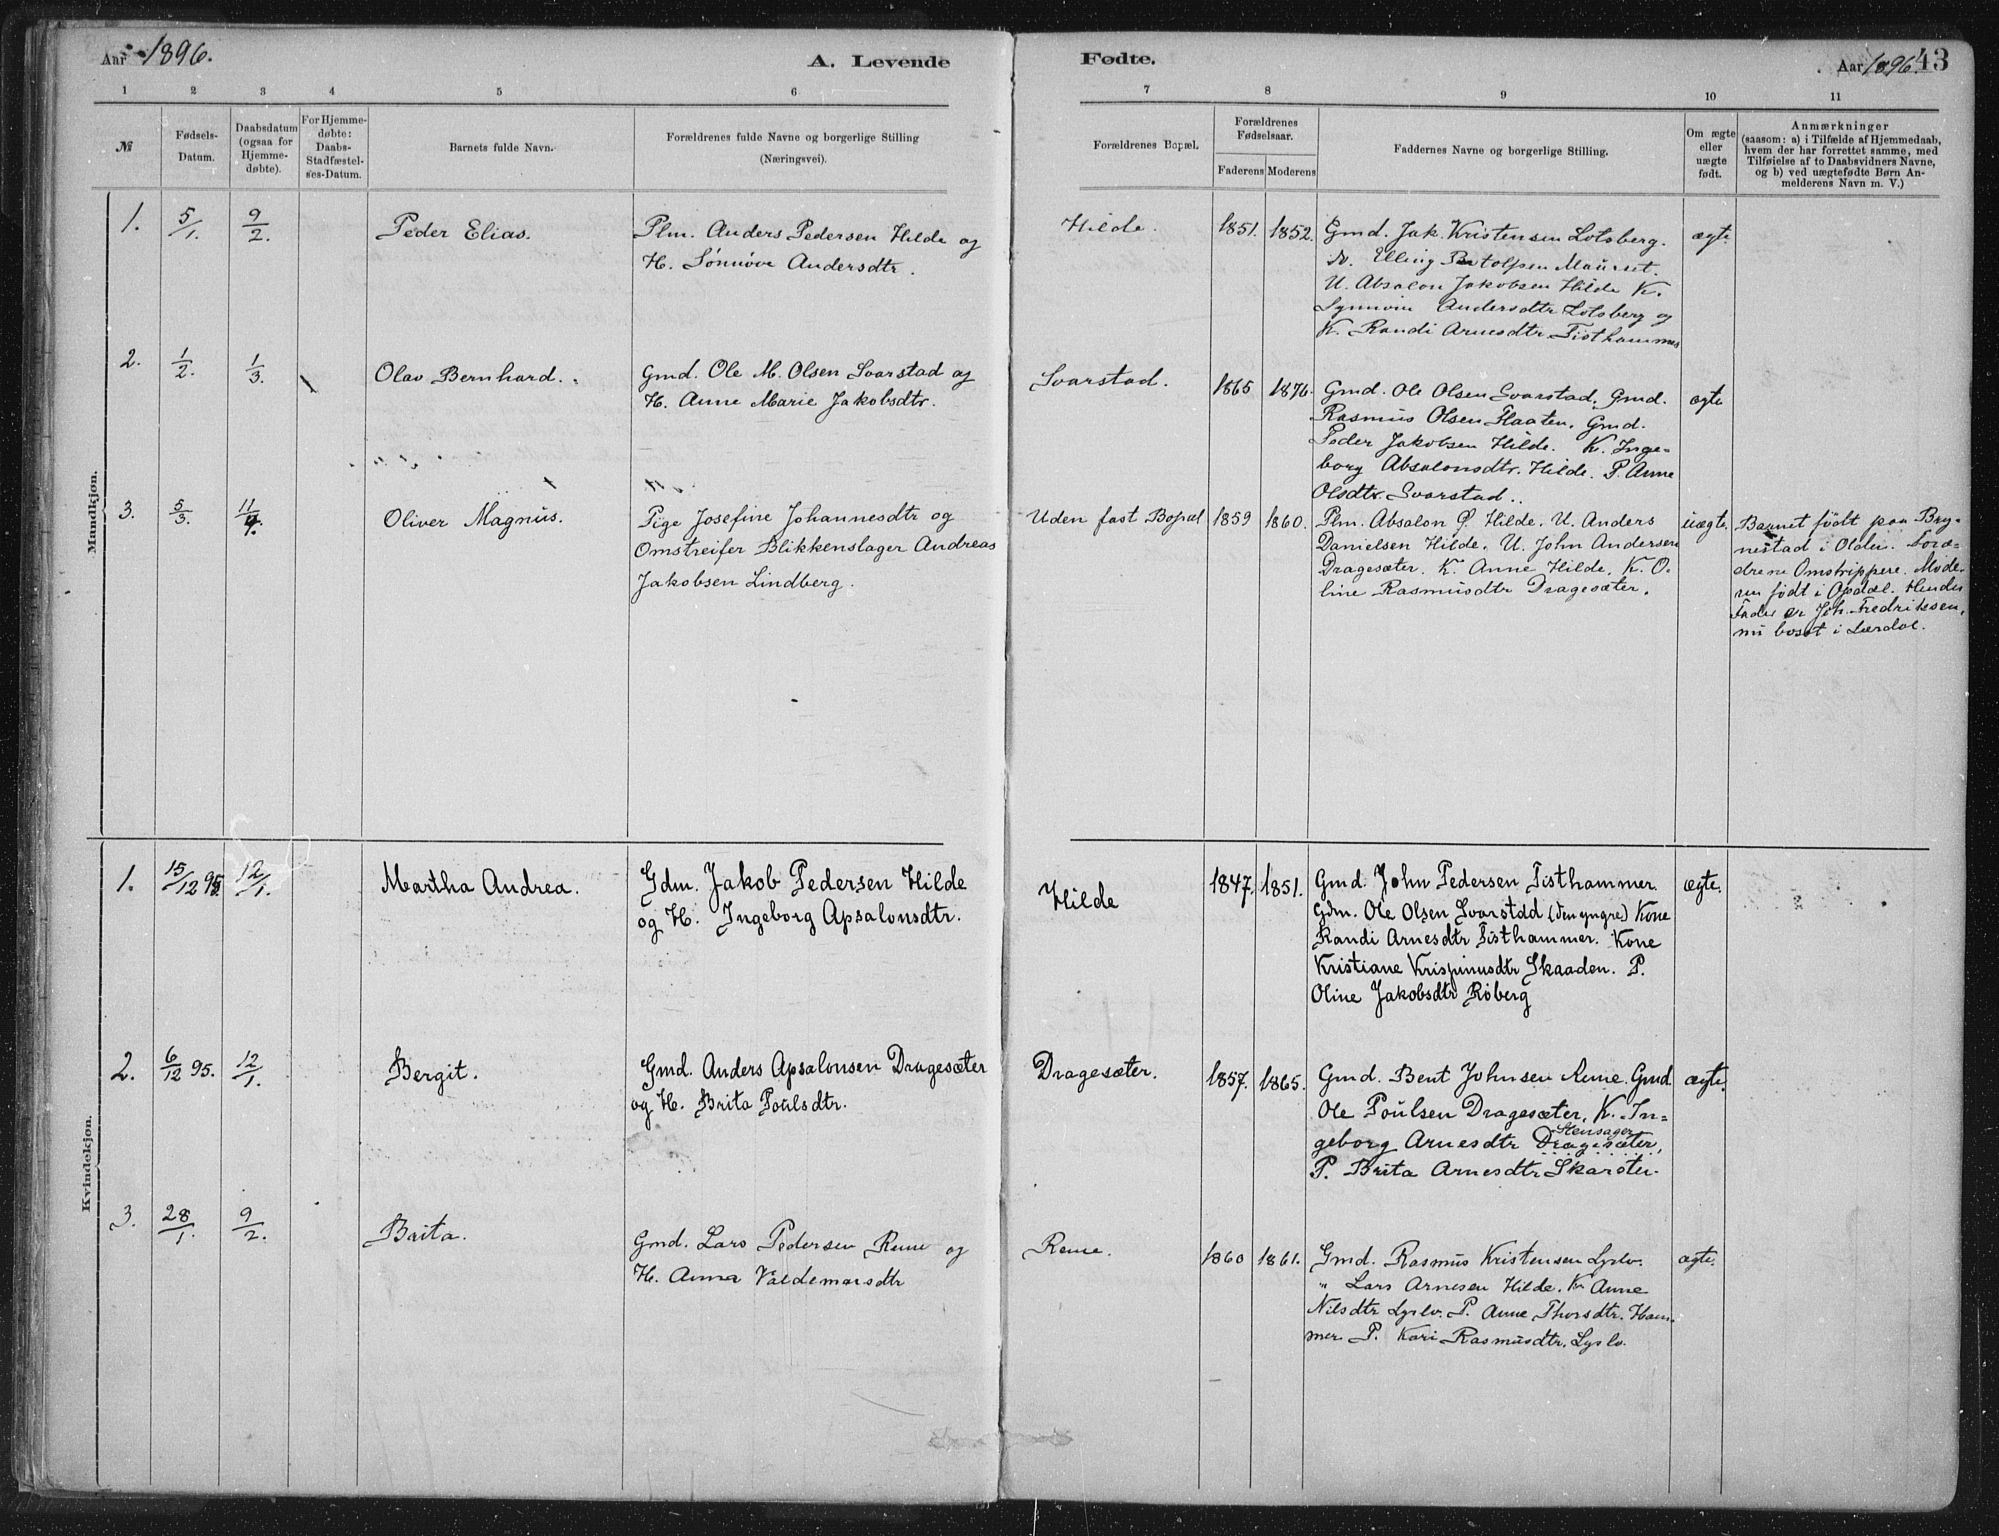 Aar 1896.
A. Levende
Fødte.
Aar 1896.
43
1 2 3 4 5 6 7 8 9 10 11
№
Fødsels-
Datum.
Daabsdatum
(ogsaa for
Hjemme-
døbte).
For Hjemme-
døbte:
Daabs-
Stadfæstel-
ses-Datum.
Barnets fulde Navn.
Forældrenes fulde Navne og borgerlige Stilling
(Næringsvei).
Forældrenes Bopæl.
Forældrenes
Fødselsaar.
Faderens Moderens
Faddernes Navne og borgerlige Stilling.
Om ægte
eller
uægte
født.
Anmærkninger
(saasom: a) i Tilfælde af Hjemmedaab,
hvem der har forrettet samme, med
Tilføielse af to Daabsvidners Navne,
og b) ved uægtefødte Børn An-
melderens Navn m. V.)
Mandkjøn.
1. 5/1. 9/2. Peder Elias.
Plm. Anders Pedersen Hilde og
H. Sønnøve Andersdtr.
Hilde. 1851. 1852.
Gmd. Jak. Kristensen Lotsberg.
Elling Maurset.
U. Absalon Jakobsen Hilde K.
Synnøve Andersdtr Lotsberg og
K. Randi Arnesdtr Tisthammer
ægte
2. 1/2. 1/3. Olav Bernhard.
Gmd. Ole M. Olsen Svarstad og
H. Anne Marie Jakobsdtr.
Svarstad. 1865 1876.
Gmd. Ole Olsen Svarstad, Gmd.
Rasmus Olsen Flaaten. Gmd.
Peder Jakobsen Hilde. K. Inge-
borg Absalonsdtr. Hilde. P. Anne
Olsdtr. Svarstad..
ægte
3. 5/3. 11/4. Oliver Magnus.
Pige Josefine Johannesdtr og
Omstreifer Blikkenslager Andreas
Jakobsen Lindberg.
Uden fast Bopæl 1859 1860.
Plm. Absalon Ø. Hilde. U. Anders
Danielsen Hilde. U. John Andersen
Dragesæter. K. Anne Hilde. K. O-
line Rasmusdtr Dragesæter.
uægte.
Barnet født paa Bry-
nestad i Olden. Foræ-
drene Omstrippere. Mode-
ren født i Opdal. Hendes
Fader er Joh. Fredriksen,
nu bosat i Lærdal.
Kvindekjøn.
1. 15/12 95. 12/1. Martha Andrea.
Gdm. Jakob Pedersen Hilde
og H. Ingeborg Apsalonsdtr.
Hilde 1847. 1851.
Gmd. John Pedersen Tisthammer.
Gdm. Ole Olsen Svarstad (den yngre) Kone
Randi Arnesdtr Tisthammer. Kone
Kristiane Krispinusdtr Skaaden. P.
Oline Jakobsdtr Röberg
ægte.
2. 6/12 95. 12/1. Bergit.
Gmd. Anders Apsalonsen Dragesæter
og H. Brita Poulsdtr.
Dragesæter. 1857. 1865.
Gmd. Bent Johnsen Reme. Gmd
Ole Poulsen Dragesæter, K. In-
geborg Arnesdtr Dragesæter, Stensager
P. Brita Arnesdtr Skarsten.
ægte.
3. 28/1. 9/2. Brita.
Gmd. Lars Pedersen Reme og
H. Anna Valdemarsdtr
Reme. 1860 1861.
Gmd. Rasmus Kristensen Lyslo.
" Lars Arnesen Hilde. K. Anne
Nilsdtr Lyslo. P. Anne Thorsdtr. Ham-
mer P. Kari Rasmusdtr. Lyslo.
ægte.